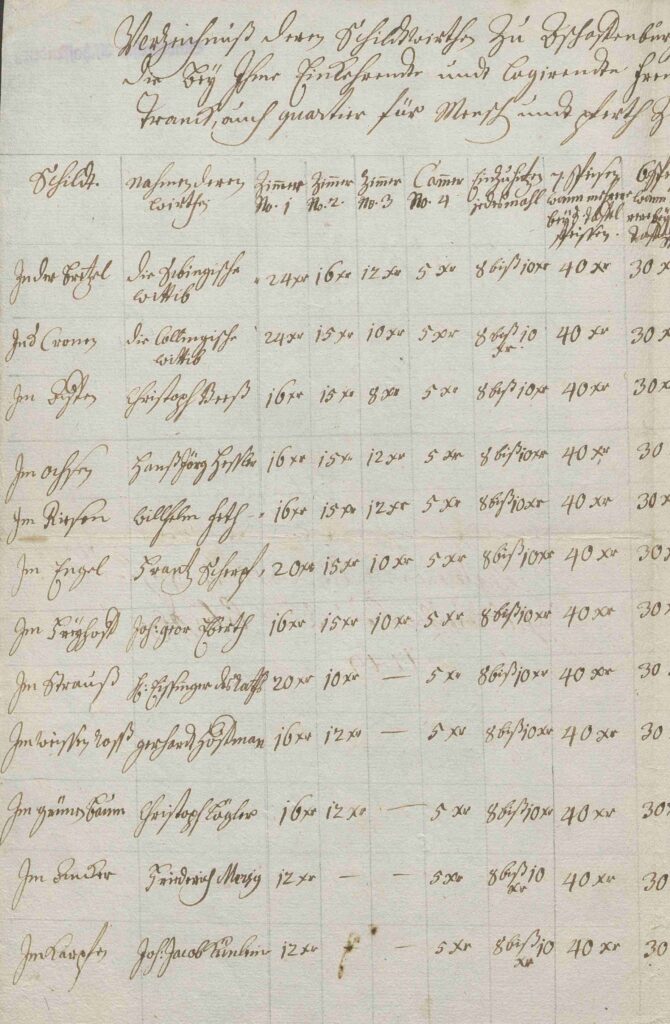 Verzeichnuß deren Schildtwirthen zu Aschaffenbur
die bey Ihme Einkehrende undt logirende
Tranck, auch quartier für Mensch undt pferth
Schildt. Nahmen deren Wirthen Zimmer No. 1 Zimmer No. 2. Zimmer No. 3 Cammer No. 4 jedesmahl 7 Speisen wann mehrere bey d. Tafel speissen. 6 Spei wann
In der Bretzel die Wittib 24 xr 16 xr 12 xr 5 xr 8 biß 10 xr 40 xr 30 x
In d Cronen die Wittib 24 xr 15 xr 10 xr 5 xr 8 biß 10 xr. 40 xr 30 x
Im Christoph 16 xr 15 xr 8 xr 5 xr 8 biß 10 xr 40 xr 30 x
Im Ochsen Hanß Jörg Hessler 16 xr 15 x 12 xr 5 xr 8 biß 10 xr 40 xr 30
Im Riesen Willhelm 16 xr 15 xr 12 xr 5 xr 8 biß 10 xr 40 xr 30 x
Im Engel Frantz 20 xr 15 xr 10 xr 5 xr 8 biß 10 xr 40 xr 30
Im Freyhoff Joh: geor Eberth 16 xr 15 xr 10 xr 5 xr 8 biß 10 xr 40 xr 30
Im Strauß H: des Raths 20 xr 10 xr — 5 xr 8 biß 10 xr 40 xr 30
Im Weissen Roß gerhard 16 xr 12 xr — 5 xr 8 biß 10 xr 40 xr 30
Im grünen baum Christoph 16 xr 12 xr — 5 xr 8 biß 10 xr 40 xr 30
Im Ancker Friederich Merzig 12 xr — — 5 xr 8 biß 10 xr 40 xr 30
Im Karpfen Joh: Jacob 12 xr — 5 xr 8 biß 10 xr 40 xr 30